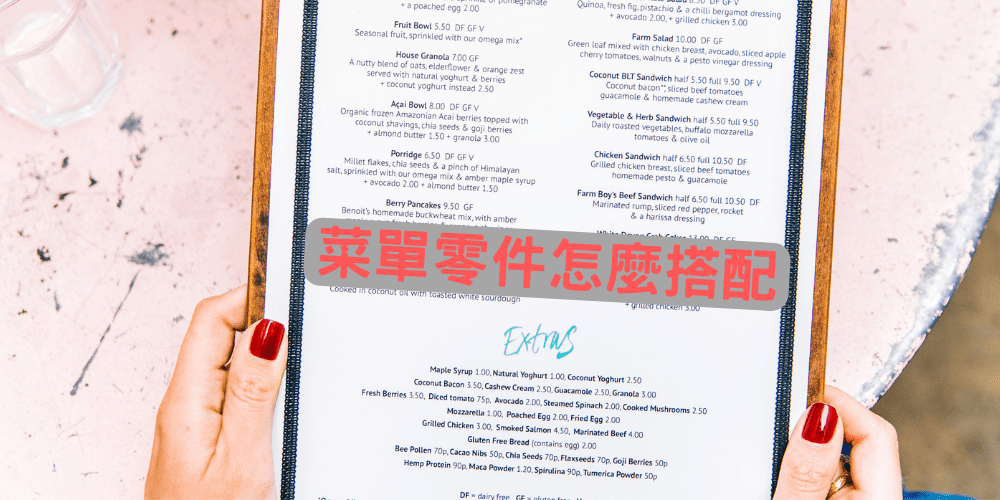 + a poached egg 2.00
Fruit Bowl 5.50 DF GF V
Seasonal fruit, sprinkled with our omega mix*
House Granola 7.00 GF
A nutty blend of oats, elderflower & orange zest
served with natural yoghurt & berries
+ coconut yoghurt instead 2.50
Açai Bowl 8.00 DF GF V
Organic frozen Amazonian Acai berries topped with
coconut shavings, chia seeds & goji berries
+ almond butter 1.50 + granola 3.00
Porridge 6.50 DF GF V
Millet flakes, chia seeds & a pinch of Himalayan
salt, sprinkled with our omega mix & amber maple syrup
+ avocado 2.00 + almond butter 1.50
Berry Pancakes 9.50 GF
Benoit's homemade buckwheat mix, with amber
Cooked in coconut oil with toasted white sourdough
Quinoa, fresh fig, pistachio & a chilli bergamot dressing
+ avocado 2.00, + grilled chicken 3.00
Farm Salad 10.00 DF GF
Green leaf mixed with chicken breast, avocado, sliced apple
cherry tomatoes, walnuts & a pesto vinegar dressing
Coconut BLT Sandwich half 5.50 full 9.50 DF V
Coconut bacon**, sliced beef tomatoes
guacamole & homemade cashew cream
Vegetable & Herb Sandwich half 5.50 full 9.50
Daily roasted vegetables, buffalo mozzarella
tomatoes & olive oil
Chicken Sandwich half 6.50 full 10.50 DF
Grilled chicken breast, sliced beef tomatoes
homemade pesto & guacamole
Farm Boy's Beef Sandwich half 6.50 full 10.50 DF
Marinated rump, sliced red pepper, rocket
& a harissa dressing
+ grilled chicken 3.00
菜單零件怎麼搭配
Extras
Maple Syrup 1.00, Natural Yoghurt 1.00, Coconut Yoghurt 2.50
Coconut Bacon 3.50, Cashew Cream 2.50, Guacamole 2.50, Granola 3.00
Fresh Berries 3.50, Diced tomato 75p, Avocado 2.00, Steamed Spinach 2.00, Cooked Mushrooms 2.50
Mozzarella 1.00, Poached Egg 2.00, Fried Egg 2.00
Grilled Chicken 3.00, Smoked Salmon 4.50, Marinated Beef 4.00
Gluten Free Bread (contains egg) 2.00
Bee Pollen 70p, Cacao Nibs 50p, Chia Seeds 70p, Flaxseeds 70p, Goji Berries 50p
Hemp Protein 90p, Maca Powder 1.20, Spirulina 90p, Tumerica Powder 50p
DF = dairy free GF = gluten free